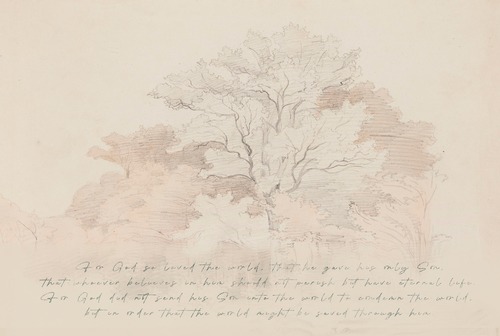 For God so loved the world, that he gave his only Son,
that whoever believes in him should not perish but have eternal life.
For God did not send his Son into the world to condemn the world,
but in order that the world might be saved through him